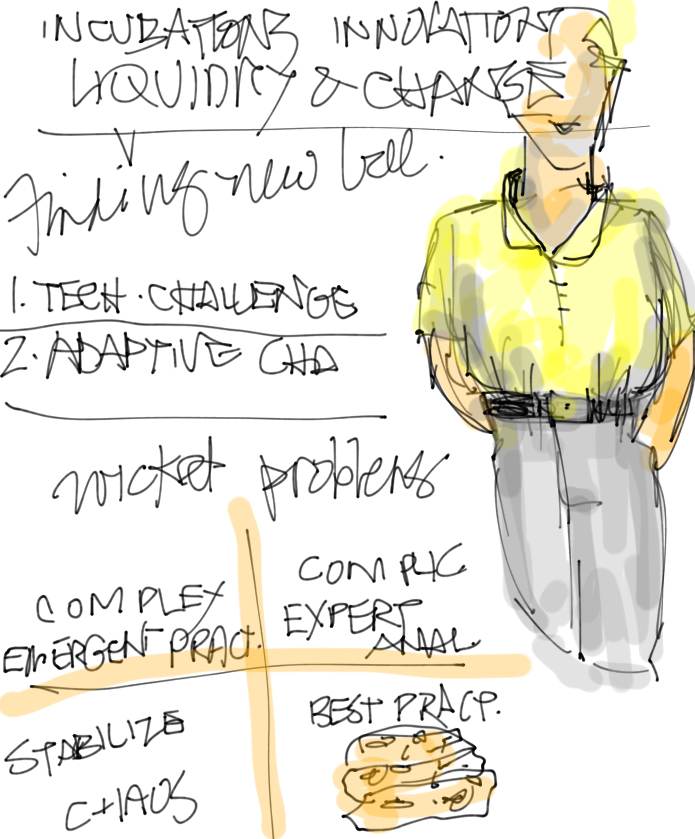 INCUBATIONS INNOVATION
LIQUIDITY & CHANGE
Finding new
1. TECH. CHALLENGE
2. ADAPTIVE CHA
wicket problems
COMPLEX
EMERGENT PRACT.
COMPLIC
EXPERT
ANAL
STABILIZE
CHAOS
BEST PRACT.